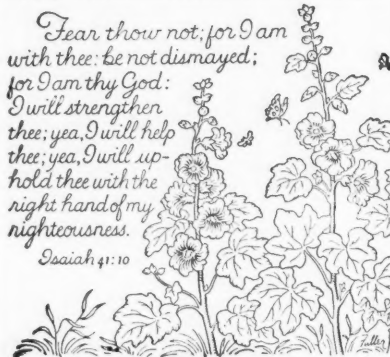 Fear thou not; for I am
with thee: be not dismayed;
for I am thy God:
I will strengthen
thee; yea, I will help
thee; yea, I will up-
hold thee with the
right hand of my
righteousness.
Isaiah 41:10